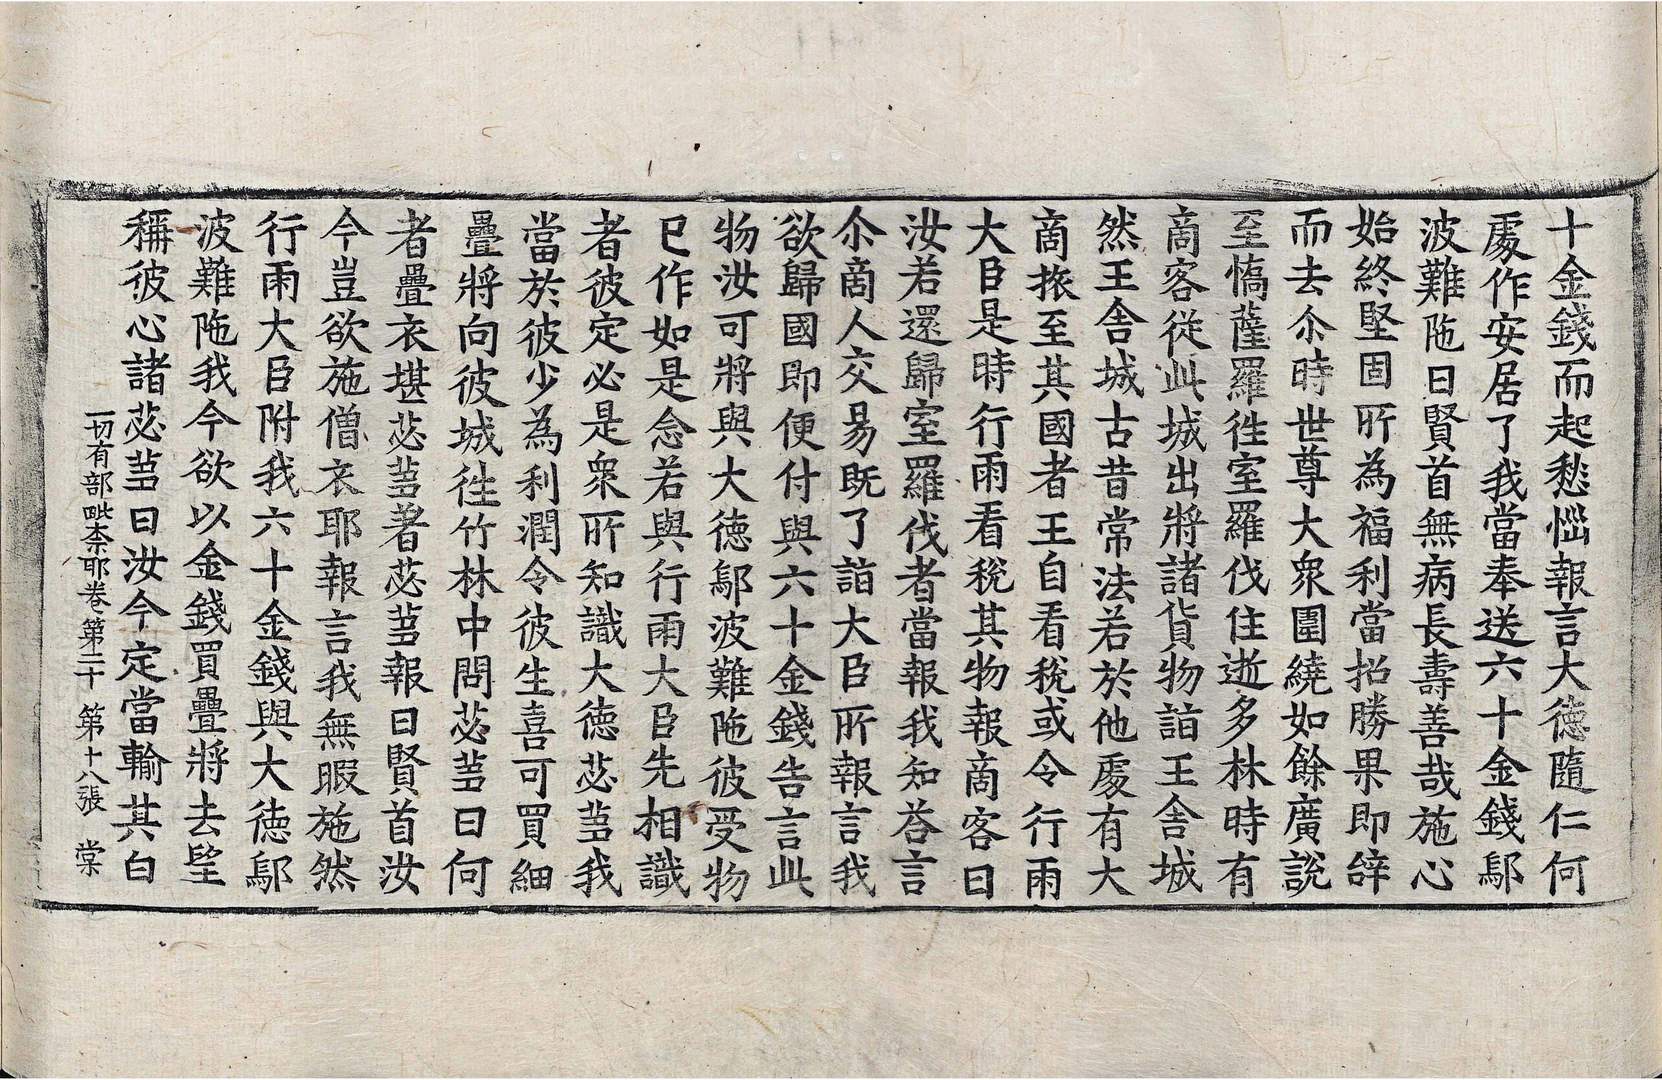 十金錢而起愁惱報言大德隨仁何
處作安居了我當奉送六十金錢鄔
波難陁曰賢首無病長壽善哉施心
始終堅固所為福利當招勝果即辝
而去尒時世尊大衆圍繞如餘廣說
至憍薩羅徃室羅伐住逝多林時有
商客従此城出將諸貨物詣王舍城
然王舍城古昔常法若於他處有大
商旅至其國者王自看稅或令行雨
大臣是時行雨看稅其物報商客曰
汝若還歸室羅伐者當報我知荅言
尒商人交易既了詣大臣所報言我
欲歸國即便付與六十金錢告言此
物汝可將與大德鄔波難陁彼受物
已作如是念若與行雨大臣先相識
者彼定必是衆所知識大德苾芻我
當於彼少為利潤令彼生喜可買細
疊將向彼城徃竹林中問苾芻曰何
者疊衣堪苾芻著苾芻報曰賢首汝
今豈欲施僧衣耶報言我無暇施然
行雨大臣附我六十金錢與大德鄔
波難陁我今欲以金錢買疊將去望
稱彼心諸苾芻曰汝今定當輸其白
一切有部毗柰耶卷第二十　第十八張　棠